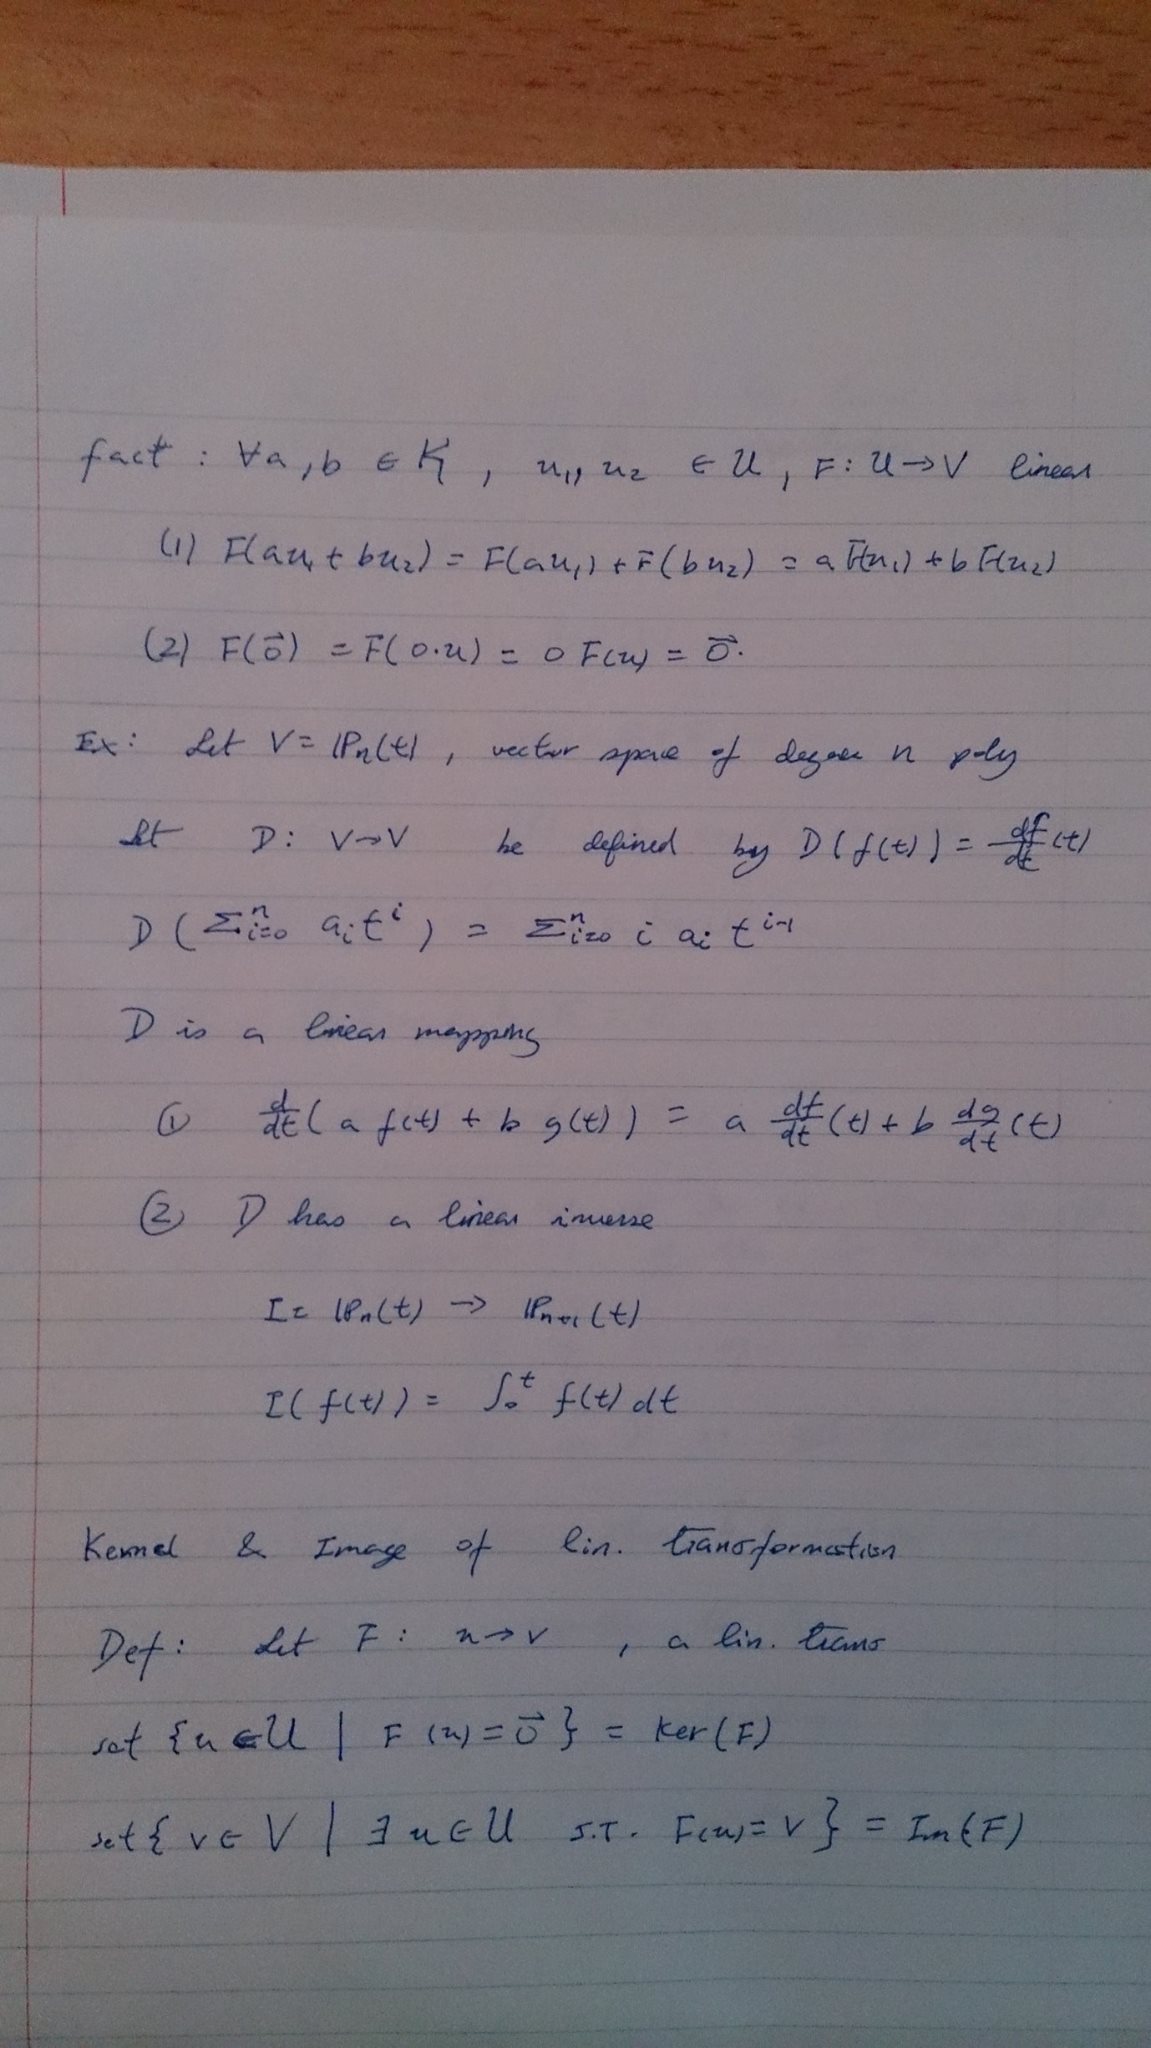 fact : ∀a, b ∈ K, u₁, u₂ ∈ U, F: U→V linear
(1) F(au₁ + bu₂) = F(au₁) + F(bu₂) = a F(u₁) + b F(u₂)
(2) F(0⃗) = F(0·u) = 0 F(u) = 0⃗.
Ex: Let V = ℙn(t), vector space of degree n poly
let D: V→V be defined by D(f(t)) = df/dt (t)
D(Σⁿᵢ₌₀ aᵢtⁱ) = Σⁿᵢ₌₀ i aᵢ tⁱ⁻¹
D is a linear mapping
① d/dt(a f(t) + b g(t)) = a df/dt (t) + b dg/dt (t)
② D has a linear inverse
I = ℙn(t) → ℙn+1(t)
I(f(t)) = ∫₀ᵗ f(t) dt
Kernel & Image of lin. transformation
Def: Let F: u→v, a lin. trans
set {u ∈ U | F(u) = 0⃗} = Ker(F)
set {v ∈ V | ∃ u ∈ U S.T. F(u) = v} = Im(F)